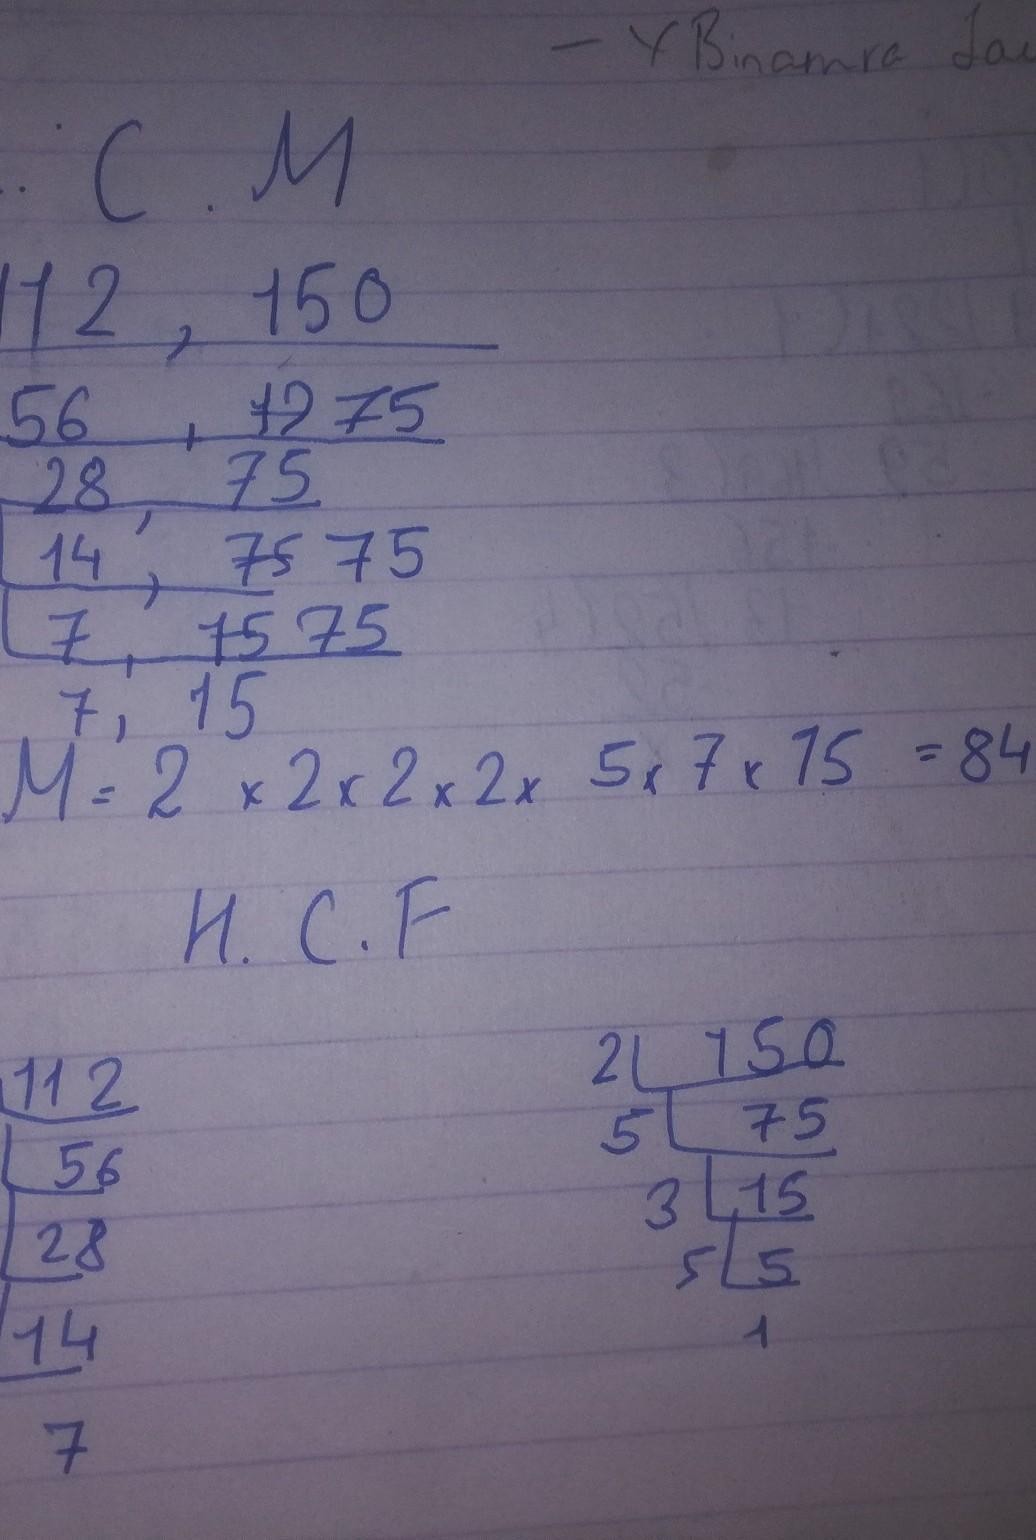 - Binamra
C.M
112, 150
56, 75
28, 75
14, 75 75
7, 75 75
7, 15
M = 2 x 2 x 2 x 2 x 5 x 7 x 15 = 84
H.C.F
112 2 150
56 5 75
28 3 15
14 5 5
7 1